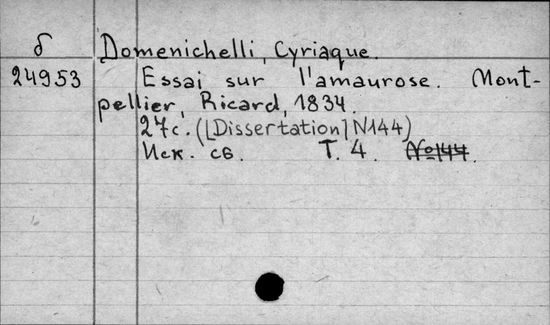 б Domenichelli, Cyriaque.
24953 Essai sur l'amaurose. Mont-
pellier, Ricard, 1834.
27с. ([Dissertation] N144)
Иск. св. Т. 4. №144.